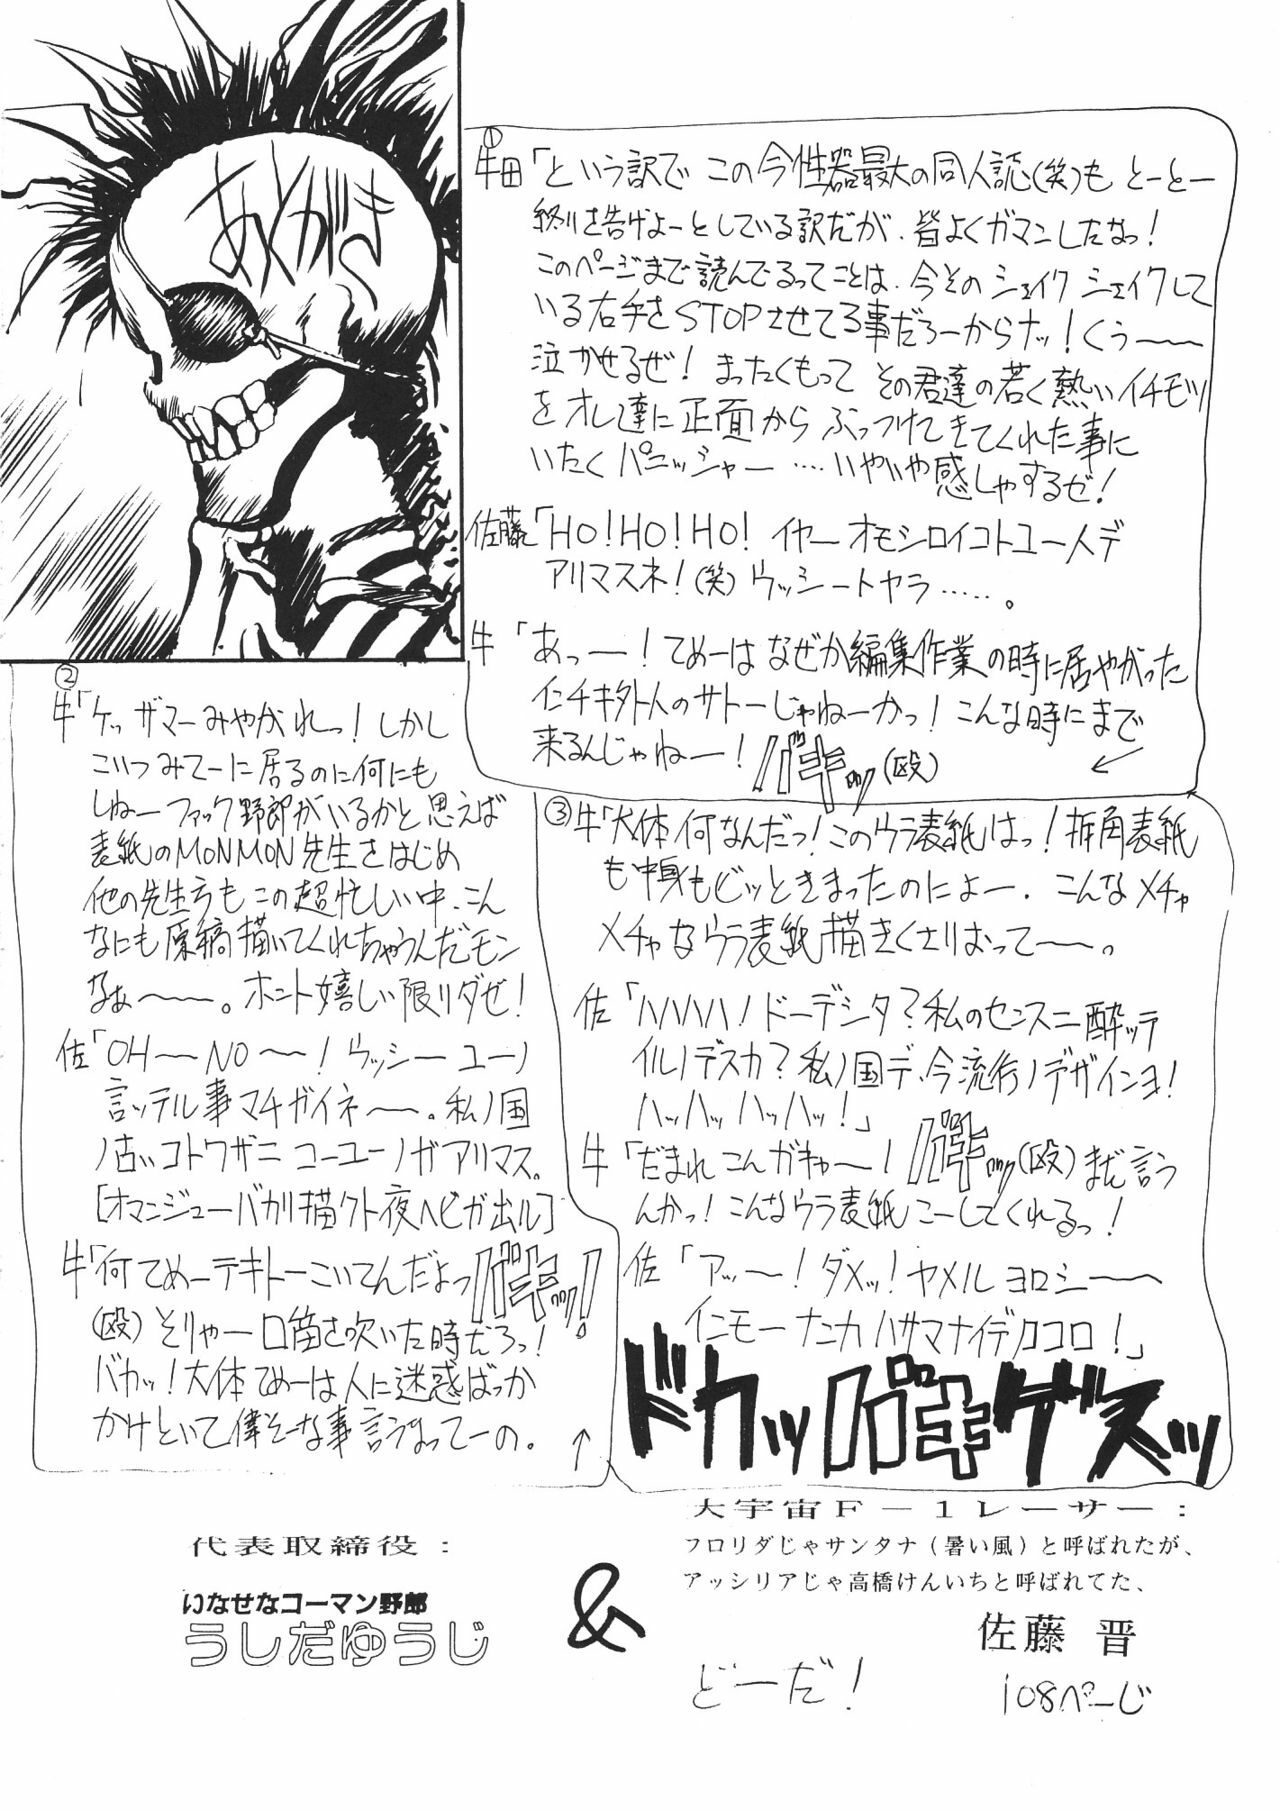 あとがき
①
牛田「という訳で この今性器最大の同人誌(笑)も とーとー
終りを告げよーとしている訳だが、皆よくガマンしたなっ!
このページまで読んでるってことは、今そのシェイクシェイクして
いる右手をSTOPさせてる事だろーからナッ!くぅ〜〜
泣かせるぜ! まったくもって その君達の若く熱いイチモツ
をオレ達に正面からぶっつけてきてくれた事に
いたくパニッシャー‥‥いやいや感しゃするぜ!
佐藤「HO!HO!HO! イヤー オモシロイコトユー人デ
アリマスネ!(笑)ウッシートヤラ‥‥‥。
牛「あっー!てめーはなぜか編集作業の時に居やがった
インチキ外人のサトーじゃねーかっ!こんな時にまで
来るんじゃねー! バキッ(殴)
②
牛「ケッ ザマーみやがれっ!しかし
こいつみてーに居るのに何にも
しねーファック野郎がいるかと思えば
表紙のMONMON先生をはじめ
他の先生方もこの超忙しい中、こん
なにも原稿描いてくれちゃうんだモン
なぁ〜〜。ホント嬉しい限りダゼ!
佐「OH〜NO〜!ウッシーユーノ
言ッテル事マチガイネ〜。私ノ国
ノ古いコトワザニ コーユーノガアリマス。
[オマンジューバカリ描クト夜ヘビガ出ル]
牛「何てめーテキトーこいてんだよっ バキッ!
(殴)そりゃー口笛を吹いた時だろっ!
バカッ!大体てめーは人に迷惑ばっか
かけといて偉そーな事言うなってーの。
↑
③牛「大体何なんだっ!このウラ表紙はっ!折角表紙
も中身もビッときまったのによー、こんなメチャ
メチャなウラ表紙描きくさりおって〜〜。
佐「ハハハハ!ドーデシタ?私のセンスニ酔ッテ
イルノデスカ?私ノ国デ、今流行ノデザインヨ!
ハッハッハッハッ!」
牛「だまれこんガキャ〜! バキッ(殴)まだ言う
んかっ!こんなウラ表紙こーしてくれるっ!
佐「アッ〜!ダメッ!ヤメル ヨロシ〜〜
インモーナニカハサマナイデノココロ!」
ドカッバキゲスッ
代表取締役:
いなせなコーマン野郎
うしだゆうじ
&
大宇宙F-1レーサー:
フロリダじゃサンタナ(暑い風)と呼ばれたが、
アッシリアじゃ高橋けんいちと呼ばれてた、
佐藤 晋
どーだ!
108ぺーじ